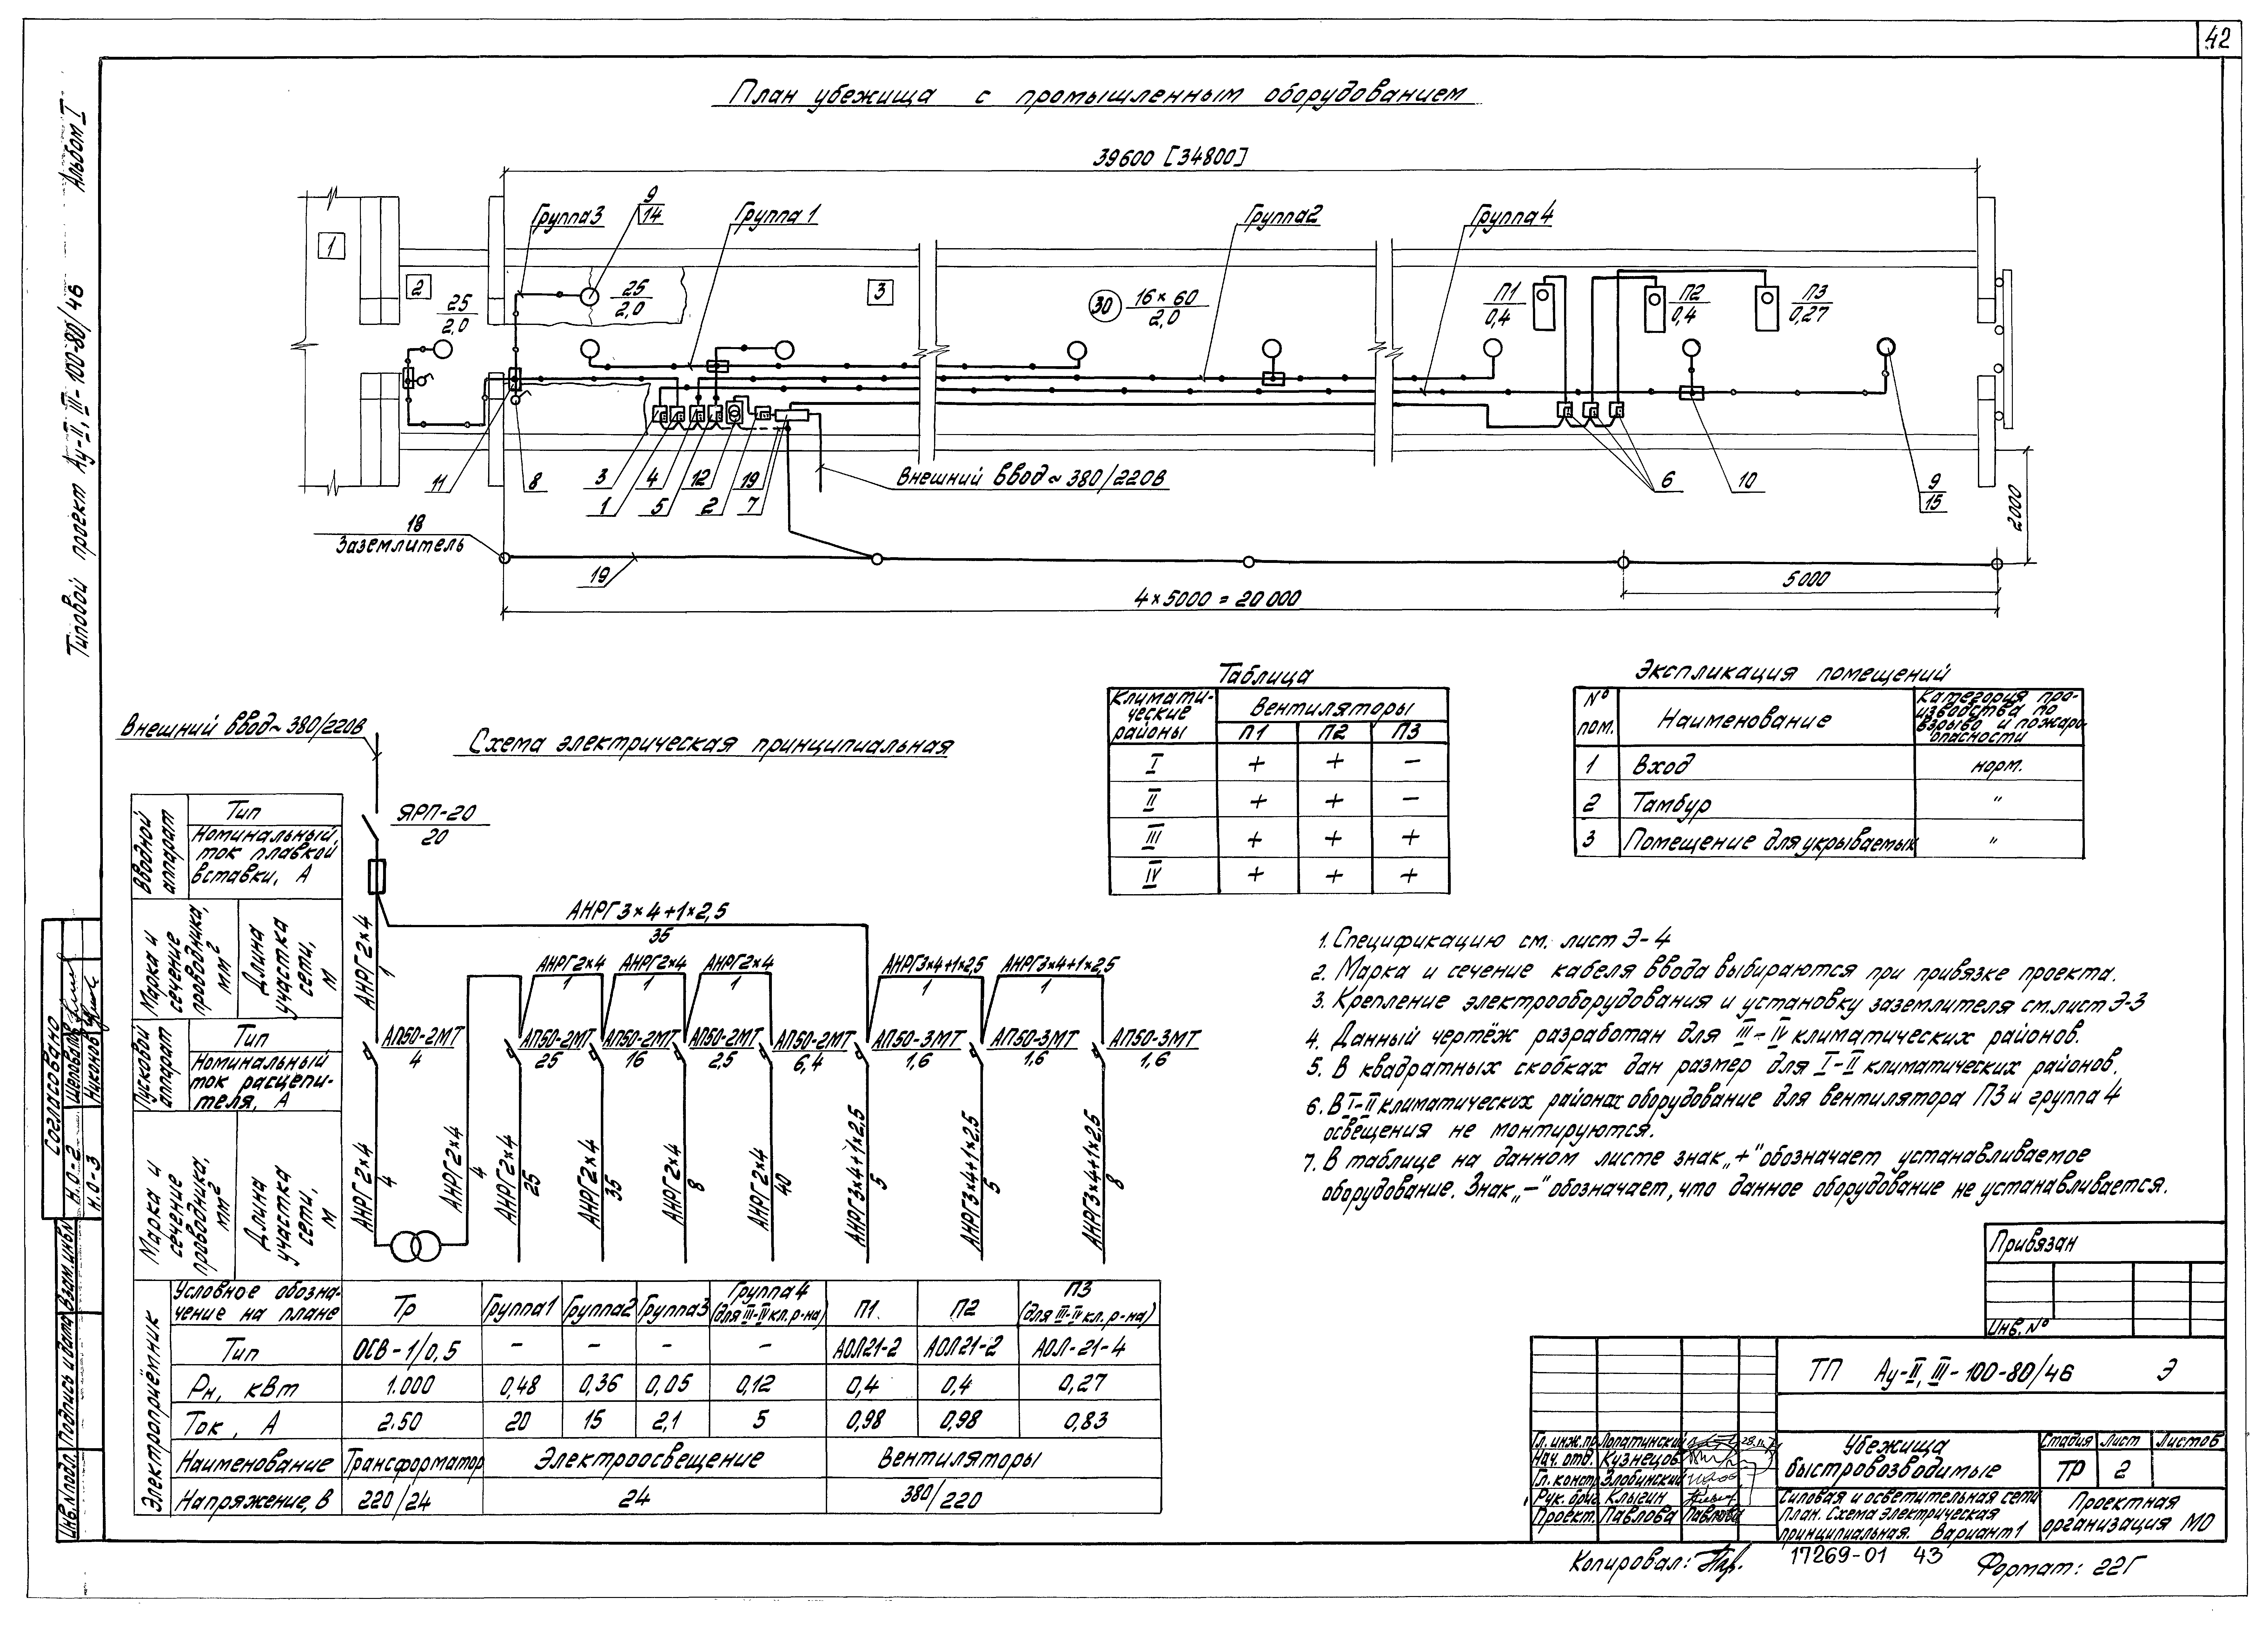 42
План убежища с промышленным оборудованием
Альбом I
Типовой проект Ау-II, III-100-80/46
39600 [34800]
Группа 3
9
14
Группа 1
Группа 2
Группа 4
1
2
25
2,0
25
2,0
3
30
16×60
2,0
П1
0,4
П2
0,4
П3
0,27
11
8
3
1
4
5
12
2
19
7
Внешний ввод ~ 380/220В
6
10
9
15
2000
18
Заземлитель
19
5000
4×5000 = 20000
Внешний ввод ~ 380/220В
Схема электрическая принципиальная
Вводной аппарат
Тип
Номинальный, ток плавкой вставки, А
ЯРП-20
20
Марка и сечение проводника, мм²
Длина участка сети, м
АНРГ 2×4
1
АНРГ 3×4+1×2,5
35
АНРГ 2×4
1
АНРГ 2×4
1
АНРГ 2×4
1
АНРГ 3×4+1×2,5
1
АНРГ 3×4+1×2,5
1
Пусковой аппарат
Тип
Номинальный ток расцепителя, А
АП50-2МТ
4
АП50-2МТ
25
АП50-2МТ
16
АП50-2МТ
2,5
АП50-2МТ
6,4
АП50-3МТ
1,6
АП50-3МТ
1,6
АП50-3МТ
1,6
Марка и сечение проводника, мм²
Длина участка сети, м
АНРГ 2×4
4
АНРГ 2×4
4
АНРГ 2×4
25
АНРГ 2×4
35
АНРГ 2×4
8
АНРГ 2×4
40
АНРГ 3×4+1×2,5
5
АНРГ 3×4+1×2,5
5
АНРГ 3×4+1×2,5
8
Электроприемник
Условное обозначение на плане Тр Группа 1 Группа 2 Группа 3 Группа 4 (для III-IV кл. р-на) П1 П2 П3 (для III-IV кл. р-на)
Тип ОСВ-1/0,5 – – – – АОЛ21-2 АОЛ21-2 АОЛ-21-4
Рн, кВт 1.000 0,48 0,36 0,05 0,12 0,4 0,4 0,27
Ток, А 2.50 20 15 2,1 5 0,98 0,98 0,83
Наименование Трансформатор Электроосвещение Вентиляторы
Напряжение, В 220/24 24 380/220
Таблица
Климатические районы Вентиляторы
П1 П2 П3
I + + –
II + + –
III + + +
IV + + +
Экспликация помещений
№ пом. Наименование Категория производства по взрыво и пожароопасности
1 Вход норм.
2 Тамбур "
3 Помещение для укрываемых "
1. Спецификацию см. лист Э-4
2. Марка и сечение кабеля ввода выбираются при привязке проекта.
3. Крепление электрооборудования и установку заземлителя см. лист Э-3
4. Данный чертёж разработан для III-IV климатических районов.
5. В квадратных скобках дан размер для I-II климатических районов.
6. В I-II климатических районах оборудование для вентилятора П3 и группа 4
освещения не монтируются.
7. В таблице на данном листе знак „+" обозначает устанавливаемое
оборудование. Знак „–" обозначает, что данное оборудование не устанавливается.
Привязан
Инв. №
ТП Ау-II, III-100-80/46 Э
Гл. инж. пр. Лопатинский
Нач. отв. Кузнецов
Гл. констр. Злобинский
Рук. бриг. Клыгин
Проект. Павлова Павлова
Убежища
быстровозводимые
Стадия Лист Листов
ТР 2
Силовая и осветительная сети
План. Схема электрическая
принципиальная. Вариант 1
Проектная
организация МО
Копировал:
17269-01 43
Формат: 22Г
Согласовано
Н.О-2
Н.О-3
Никонов
Инв. № подл. Подпись и дата Взам. инв. №